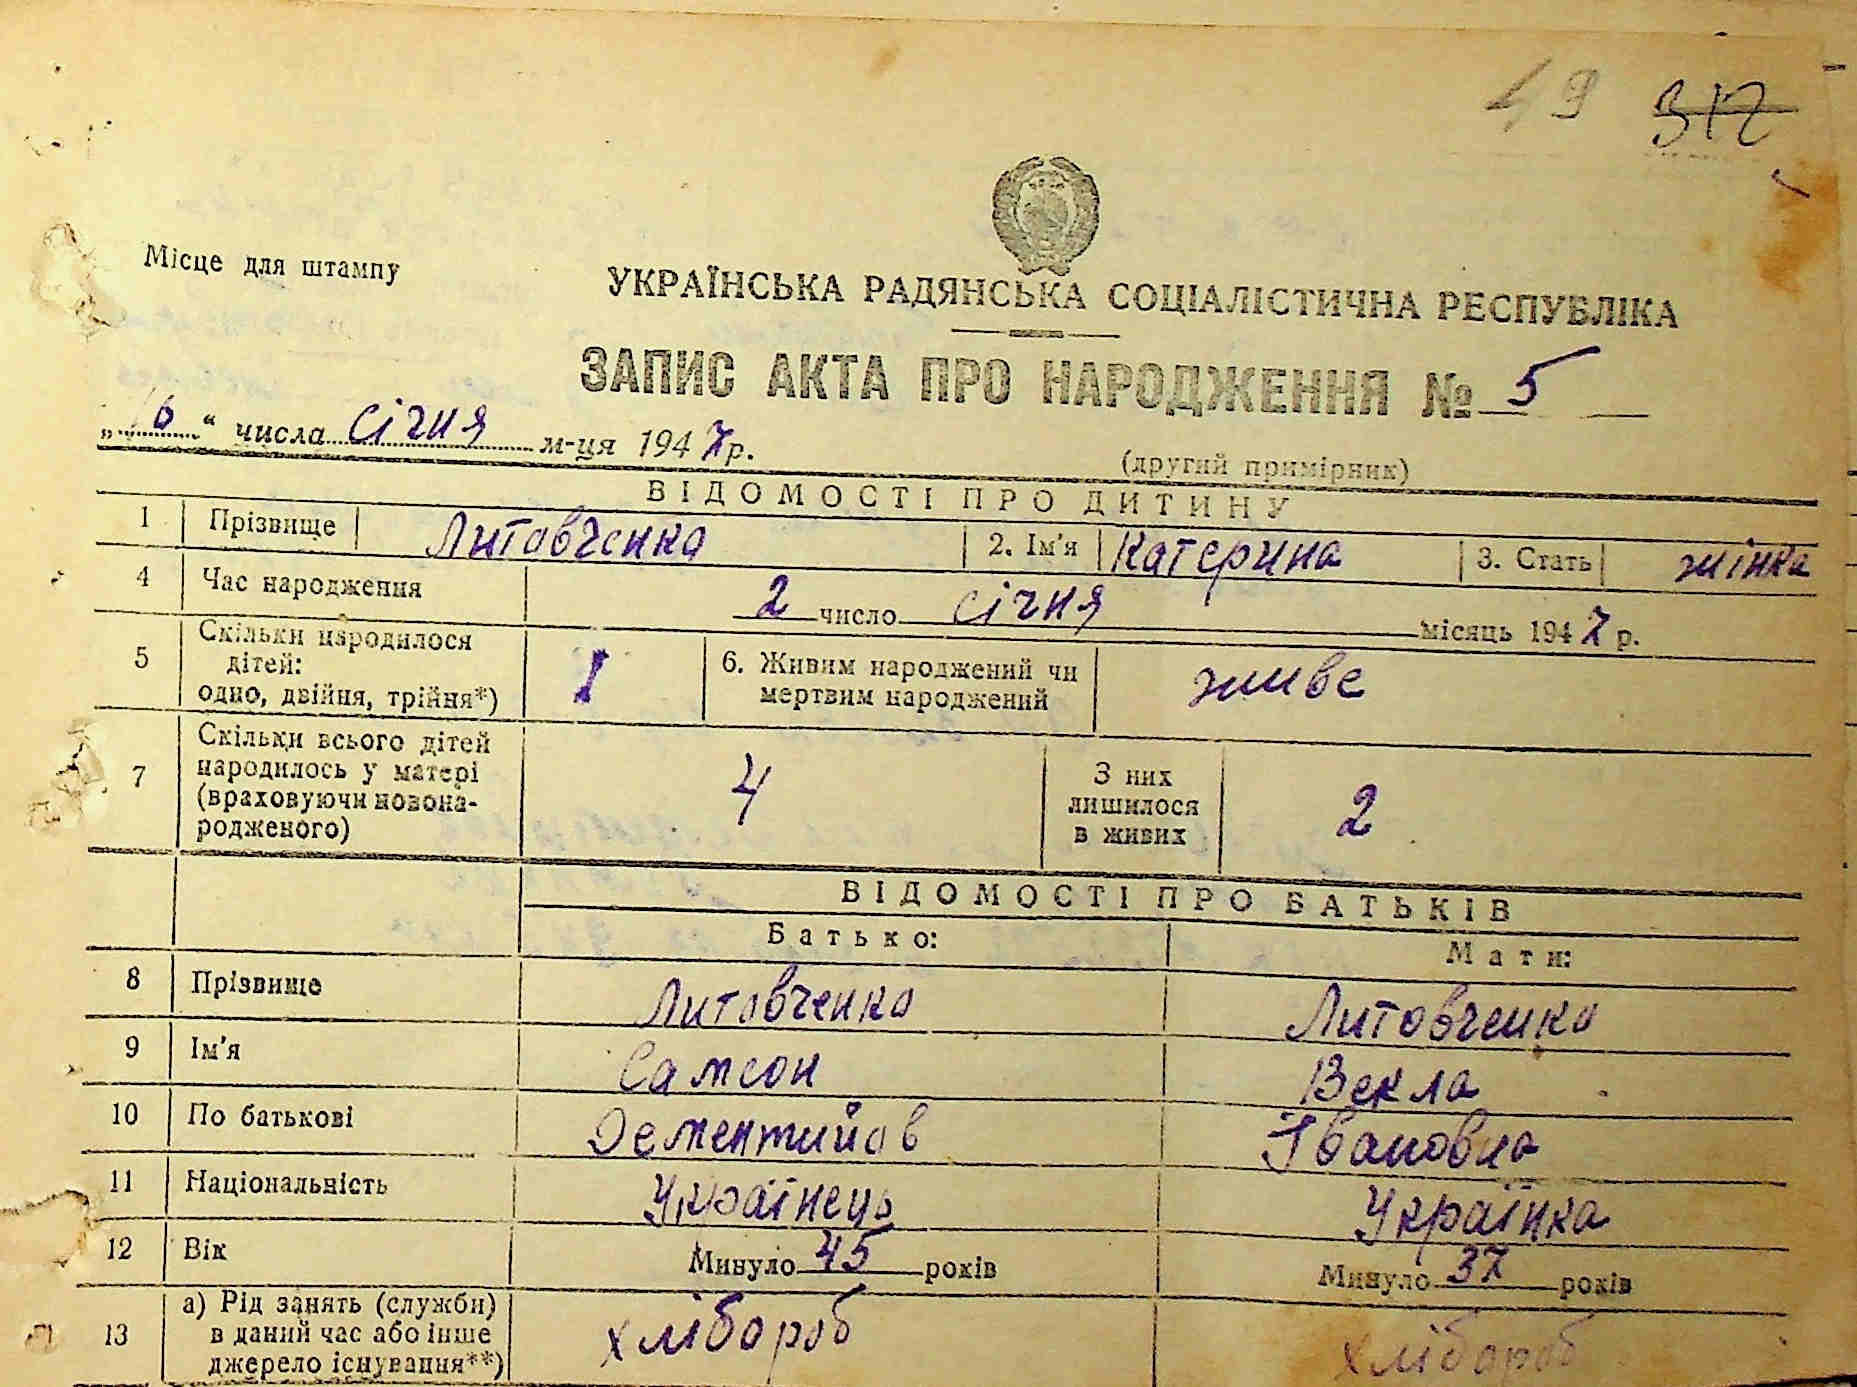 49 312
Місце для штампу
УКРАЇНСЬКА РАДЯНСЬКА СОЦІАЛІСТИЧНА РЕСПУБЛІКА
ЗАПИС АКТА ПРО НАРОДЖЕННЯ № 5
„16“ числа січня м-ця 1947 р.
(другий примірник)
ВІДОМОСТІ ПРО ДИТИНУ
1 Прізвище Литовченко 2. Ім'я Катерина 3. Стать жінка
4 Час народження 2 число січня місяць 1947 р.
5 Скільки народилося дітей: одно, двійня, трійня*) 1 6. Живим народжений чи мертвим народжений живе
7 Скільки всього дітей народилось у матері (враховуючи новонародженого) 4 З них лишилося в живих 2
ВІДОМОСТІ ПРО БАТЬКІВ
Батько: Мати:
8 Прізвище Литовченко Литовченко
9 Ім'я Самсон Векла
10 По батькові Дементийов Івановна
11 Національність Українець Українка
12 Вік Минуло 45 років Минуло 37 років
13 а) Рід занять (служби) в даний час або інше джерело існування**) хлібороб хлібороб